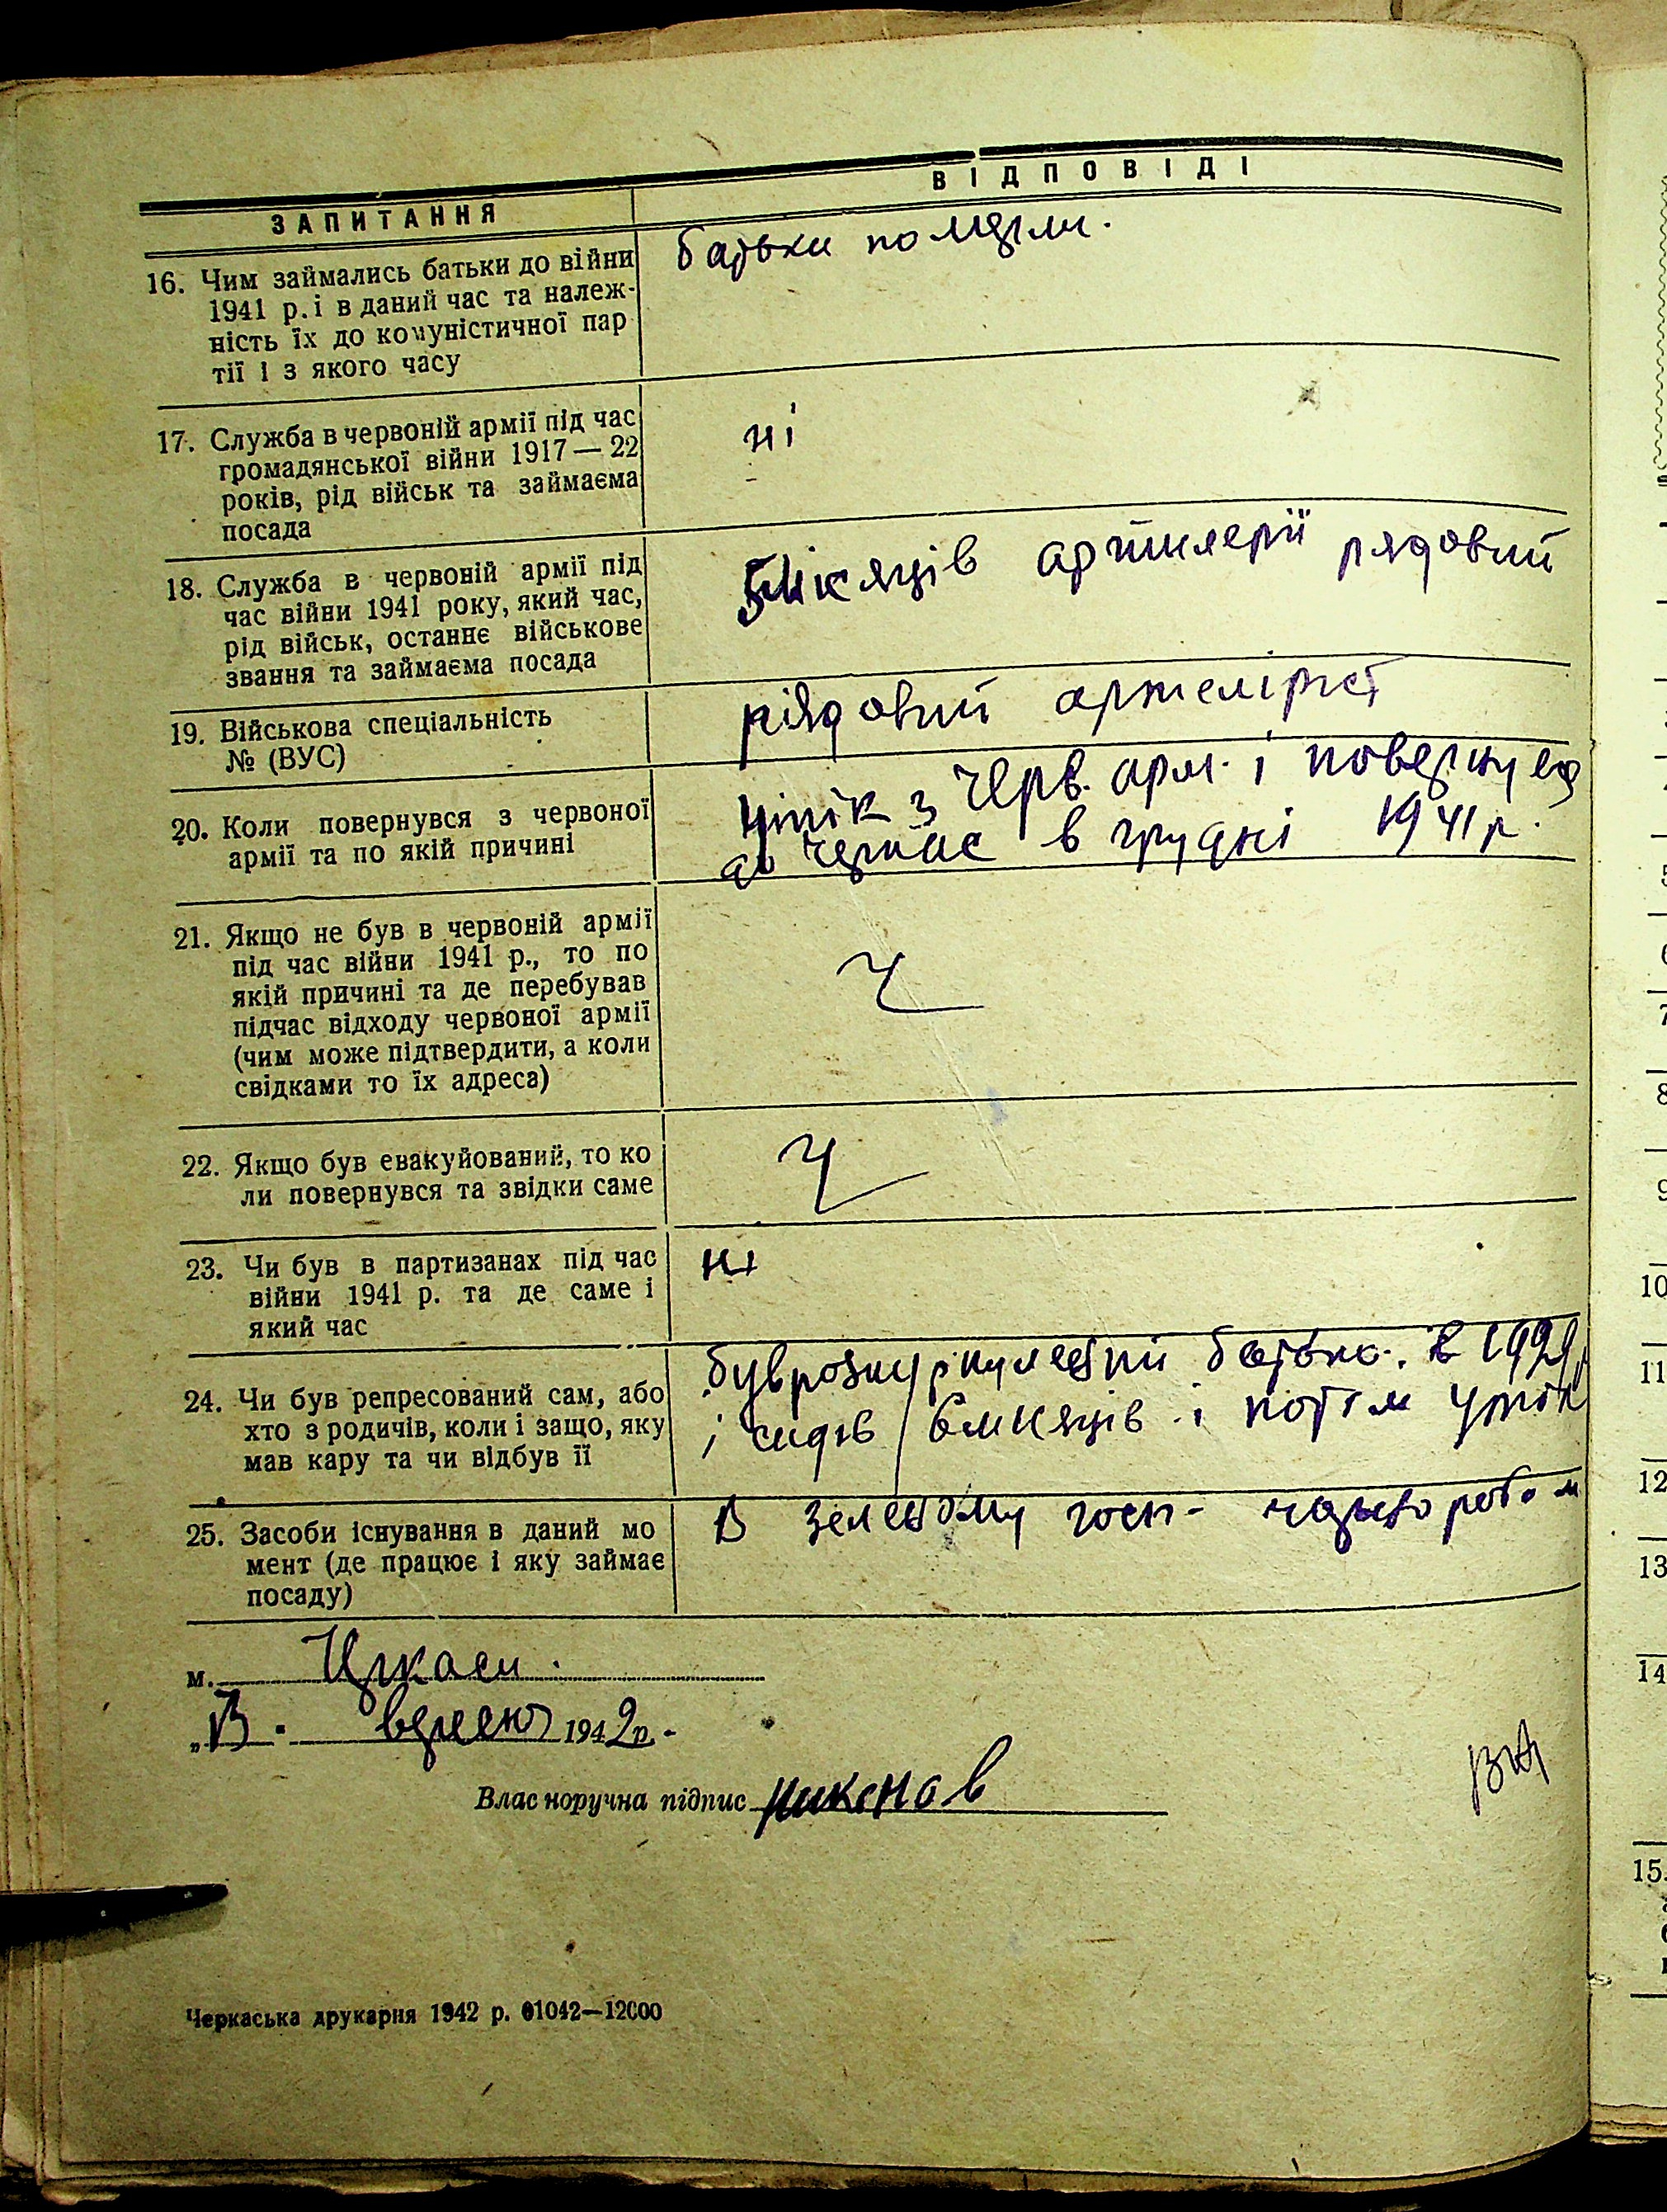 ЗАПИТАННЯ
ВІДПОВІДІ
16. Чим займались батьки до війни
1941 р. і в даний час та належ-
ність їх до комуністичної пар
тії і з якого часу
батьки
17. Служба в червоній армії під час
громадянської війни 1917—22
років, рід військ та займаєма
посада
ні
18. Служба в червоній армії під
час війни 1941 року, який час,
рід військ, останнє військове
звання та займаєма посада
5 місяців артилерії рядовий
19. Військова спеціальність
№ (ВУС)
рядовий
20. Коли повернувся з червоної
армії та по якій причині
утік з Черв. арм. і повернувся
до в грудні 1941 р.
21. Якщо не був в червоній армії
під час війни 1941 р., то по
якій причині та де перебував
підчас відходу червоної армії
(чим може підтвердити, а коли
свідками то їх адреса)
22. Якщо був евакуйований, то ко
ли повернувся та звідки саме
23. Чи був в партизанах під час
війни 1941 р. та де саме і
який час
ні
24. Чи був репресований сам, або
хто з родичів, коли і защо, яку
мав кару та чи відбув її
був батько. в 1929
і сидів 6 місяців і потім утік
25. Засоби існування в даний мо
мент (де працює і яку займає
посаду)
В зеленому госп-
м. Черкаси.
вересня 1942 р.-
Власноручна підпис
Черкаська друкарня 1942 р. 01042—12000
5
6
7
8
9
10
11
12
13
14
15.